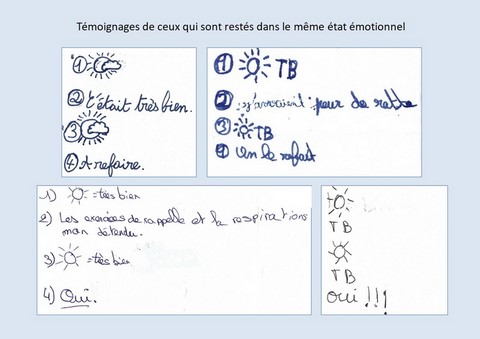 Témoignages de ceux qui sont restés dans le même état émotionnel
1
2 C'était très bien.
3
4 A refaire.
1 TB
2 peur de
3 TB
4 On le refait
1) = très bien
2) Les exercices de rappelle et la respirations
mon détendu.
3) = très bien
4) Oui.
TB
TB
oui !!!